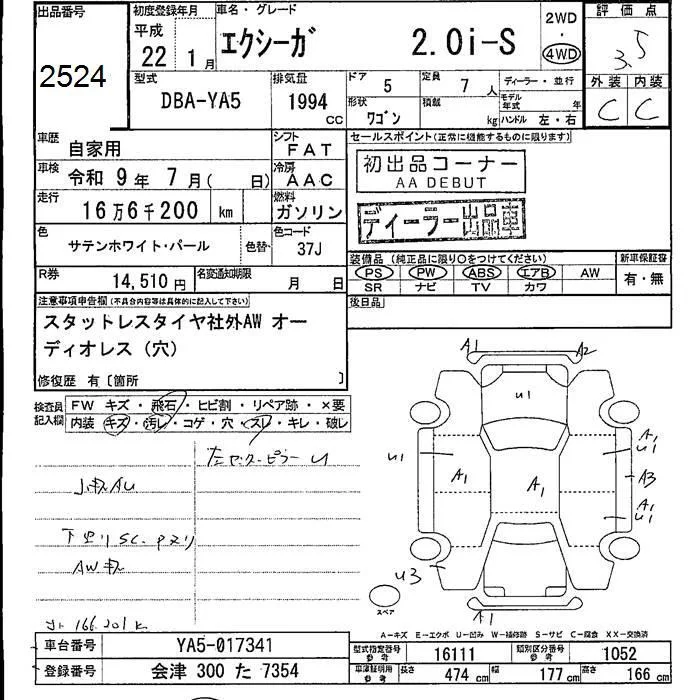 出品番号
2524
初度登録年月
平成
22年 1月
車名・グレード
エクシーガ 2.0i-S
2WD
・
4WD
評価点
3.5
外装 内装
C C
型式
DBA-YA5
排気量
1994 cc
ドア 5
定員 7人
ディーラー・並行
形状 ワゴン
積載 kg
モデル年式 年
ハンドル 左・右
車歴 自家用
シフト FAT
セールスポイント(正常に機能するものに限ります)
車検 令和 9年 7月( 日)
冷房 AAC
初出品コーナー
AA DEBUT
走行 16万6千200 km
燃料 ガソリン
ディーラー出品車
色 サテンホワイト・パール
色替
色コード 37J
装備品(純正品に限り○をつけてください)
新車保証書
PS PW ABS エアB AW
有・無
SR ナビ TV カワ
R券 14,510円
名変通知期限 月 日
後日品
注意事項申告欄(不具合内容等は具体的に記入して下さい)
スタットレスタイヤ社外AW オー
ディオレス(穴)
修復歴 有〔箇所 〕
検査員記入欄
FW キズ・飛石・ヒビ割・リペア跡・×要
内装 キズ・汚レ・コゲ・穴・スレ・キレ・破レ
A1 A2
U1
U1
A1
A1
A1
U1
A3
A1
U1
U3
A1
スペア
166.201K
A-キズ E-エクボ U-凹み W-補修跡 S-サビ C-腐食 XX-交換済
車台番号 YA5-017341
登録番号 会津 300 た 7354
型式指定番号 参考 16111
類別区分番号 参考 1052
車庫証明用 参考
長さ 474 cm
幅 177 cm
高さ 166 cm